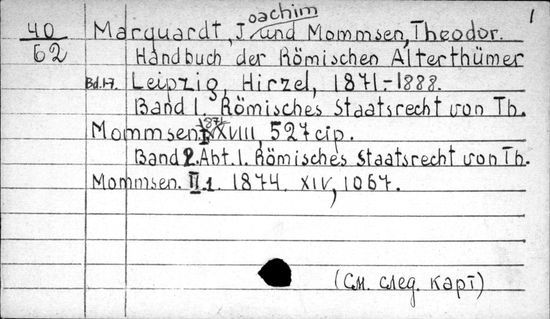 1
40 Marquardt, Joachim und Mommsen, Theodor.
62 Handbuch der Römischen Alterthümer
Bd.1-7. Leipzig, Hirzel, 1871.-1888.
Band 1. Römisches Staatsrecht von Th.
Mommsen. 1871. XVIII, 527 стр.
Band 2. Abt. 1. Römisches Staatsrecht von Th.
Mommsen. II 1. 1874. XIV, 1067.
(См. след. карт)